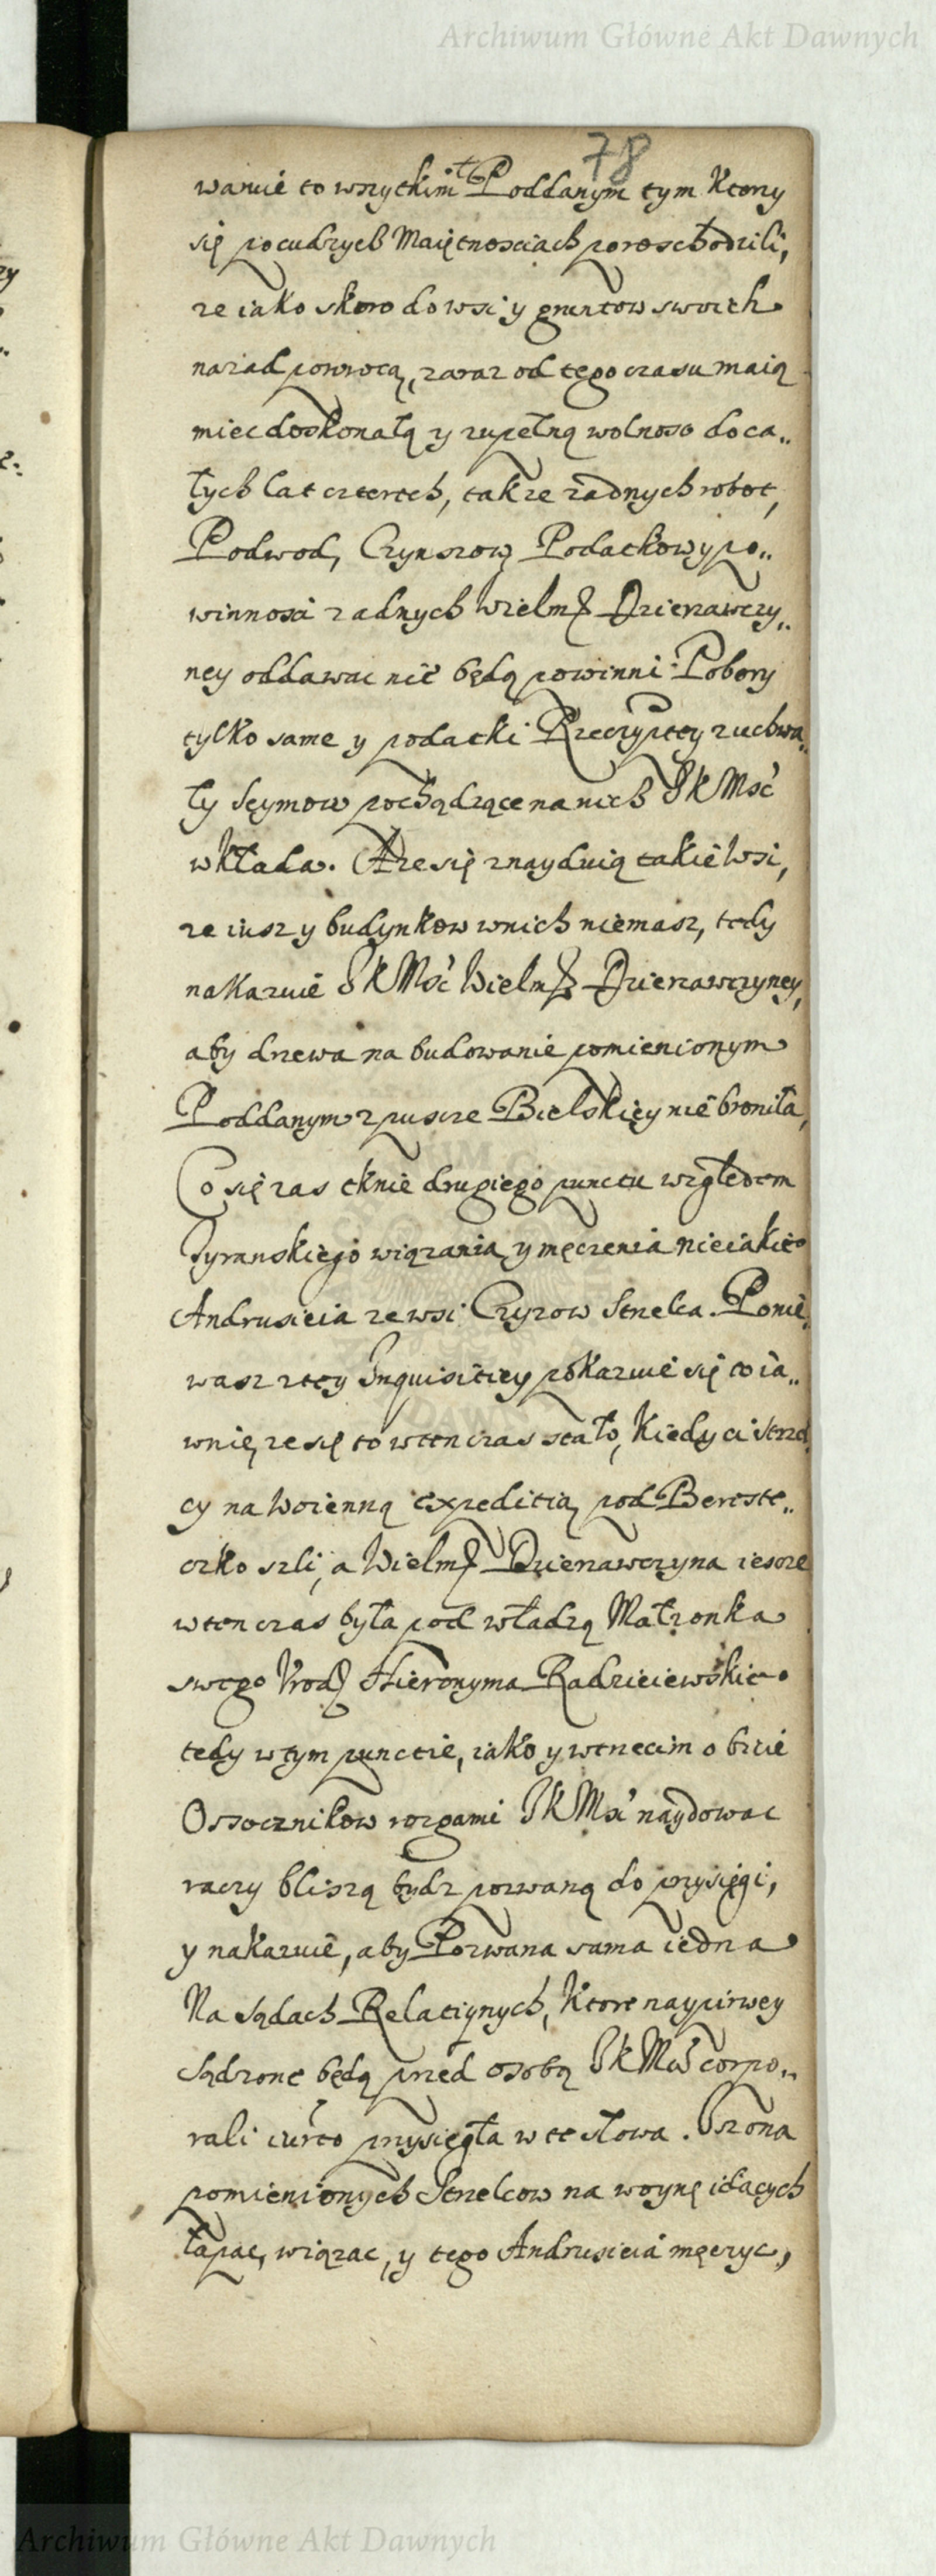 Archiwum Główne Akt Dawnych
78
wanie to wszytkim Poddanym tym ktorzy
się po cudzych Maiętnosciach poroschodzili,
ze iako skoro do wsi y gruntow swoich
nazad powrocą, zaraz od tego czasu maią
miec doskonałą y zupełną wolnosc do ca„
łych lat czterech, takze zadnych robot,
Podwod, Czynszow, Podatkow y po„
winnosci zadnych Wielmz Dzierzawczy„
ney oddawac nie będą powinni. Pobory
tylko same y podatki Rzeczyptey z uchwa„
ły Seymow pochądzące na nich JKMsc
wkłada. A ze się znayduią takie Wsi,
ze iusz y budynkow w nich niemasz, tedy
nakazuie JKMsc Wielmz Dzierzawczyney,
aby drzewa na budowanie pomienionym
Poddanym z puszcze Bielskiey nie broniła,
Co się zas tknie drugiego punctu względem
Tyranskiego wiązania y męczenia nieiakieo
Andrusieia ze wsi Czyzow Strzelca. Ponie„
wasz z tey Inquisitiey pokazuie się to ia„
wnie, ze się to wten czas stało, kiedy ci strzel
cy na Woienną expeditią pod Bereste„
czko szli, a Wielmz Dzierzawczyna ieszcze
wten czas była pod władzą Małzonka
swego Vrodz Hieronyma Radzieiewskie°
tedy w tym punctie, iako y w trzecim o bicie
Ossocznikow rozgami JKMsc naydowac
raczy blizszą bydz pozwaną do przysięgi,
y nakazuie, aby Pozwana sama iedna
Na sądach Relatiynych, ktore naypirwey
sądzone będą przed osobą JKMsci corpo„
rali iurto przysięgła w te słowa. Isz ona
pomienionych Strzelcow na woynę idących
łapac, wiązac, y tego Andrusieia męczyc,
Archiwum Główne Akt Dawnych